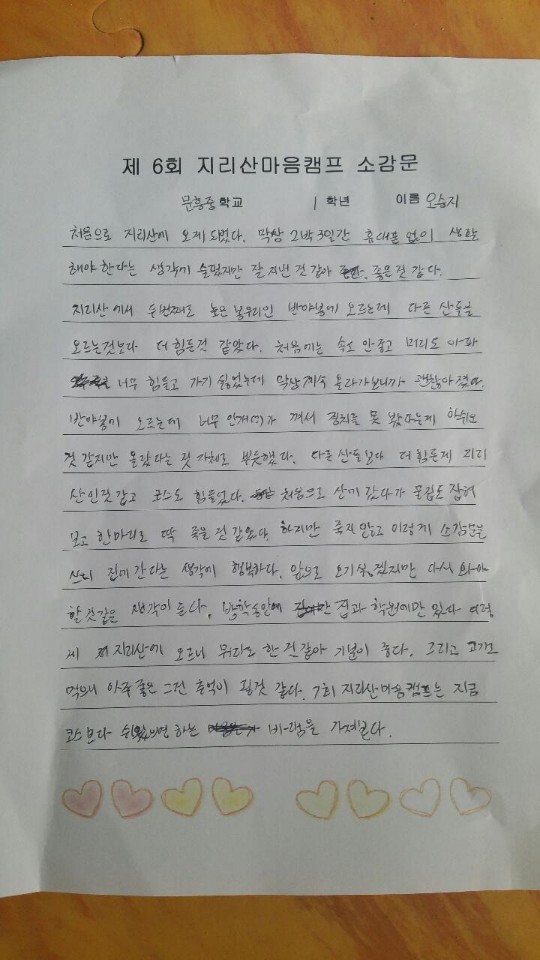 제 6회 지리산마음캠프 소감문
문흥중학교 1 학년 이름 오승지
처음으로 지리산에 오게 되었다. 막상 2박 3일간 휴대폰 없이 생활
해야 한다는 생각에 슬펐지만 잘 지낸 것 같아 좋은 것 같다.
지리산에서 두번째로 높은 봉우리인 반야봉에 오르는데 다른 산들을
오르는것보다 더 힘든것 같았다. 처음에는 속도 안좋고 머리도 아파
너무 힘들고 가기 싫었는데 막상 계속 올라가보니까 괜찮아졌다.
반야봉에 오르는데 너무 안개가 껴서 경치를 못 봤다는게 아쉬운
것 같지만 올랐다는 것 자체로 뿌듯했다. 다른 산들보다 더 힘든게 지리
산인것 같고 코스도 힘들었다. 처음으로 산에 갔다가 물집도 잡혀
보고 한마디로 딱 죽을 것 같았다. 하지만 죽지 않고 이렇게 소감문을
쓰니 집에 간다는 생각에 행복하다. 앞으로 오기 싫겠지만 다시 와야
할 것 같은 생각이 든다. 방학동안에 집과 학원에만 있다 이렇
게 지리산에 오르니 뭐라도 한 것 같아 기분이 좋다. 그리고 고기도
먹으니 아주 좋은 그런 추억이 될것 같다. 7회 지리산마음캠프는 지금
코스보다 쉬웠으면 하는 바램을 가져본다.